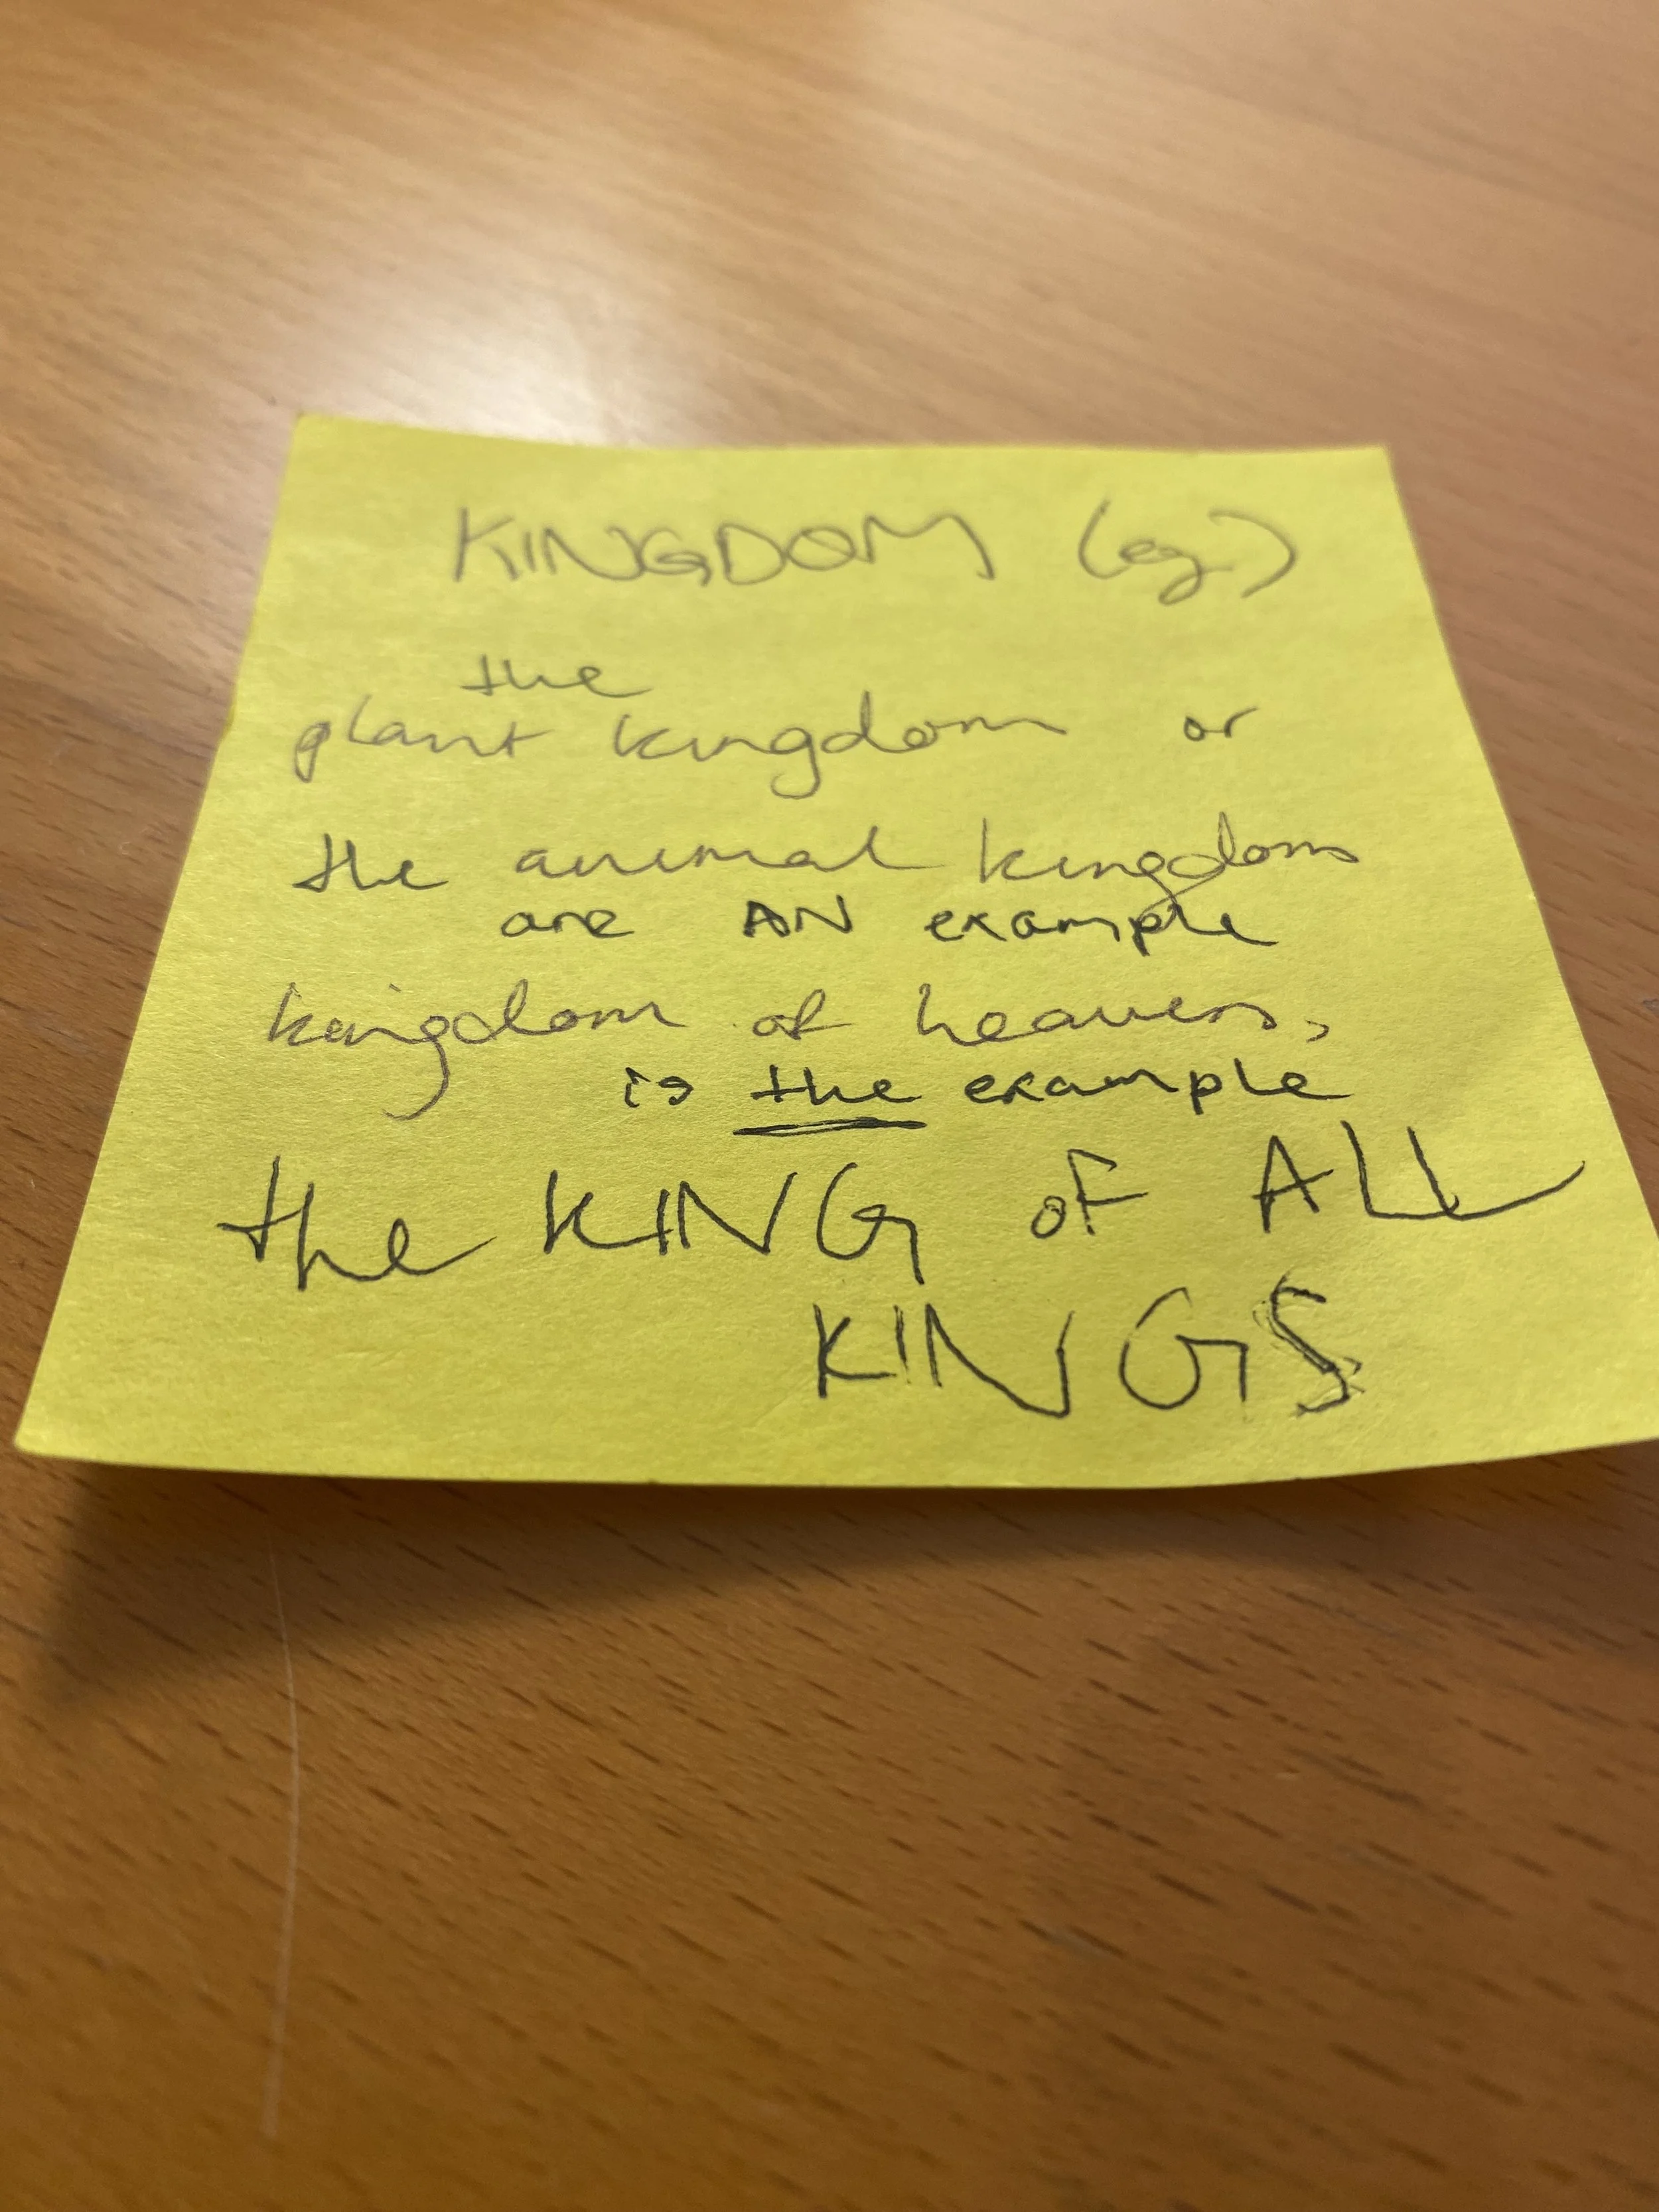 KINGDOM (eg)
the
plant kingdom or
the animal kingdom
are AN example
kingdom of heaven,
is the example
the KING OF ALL
KINGS